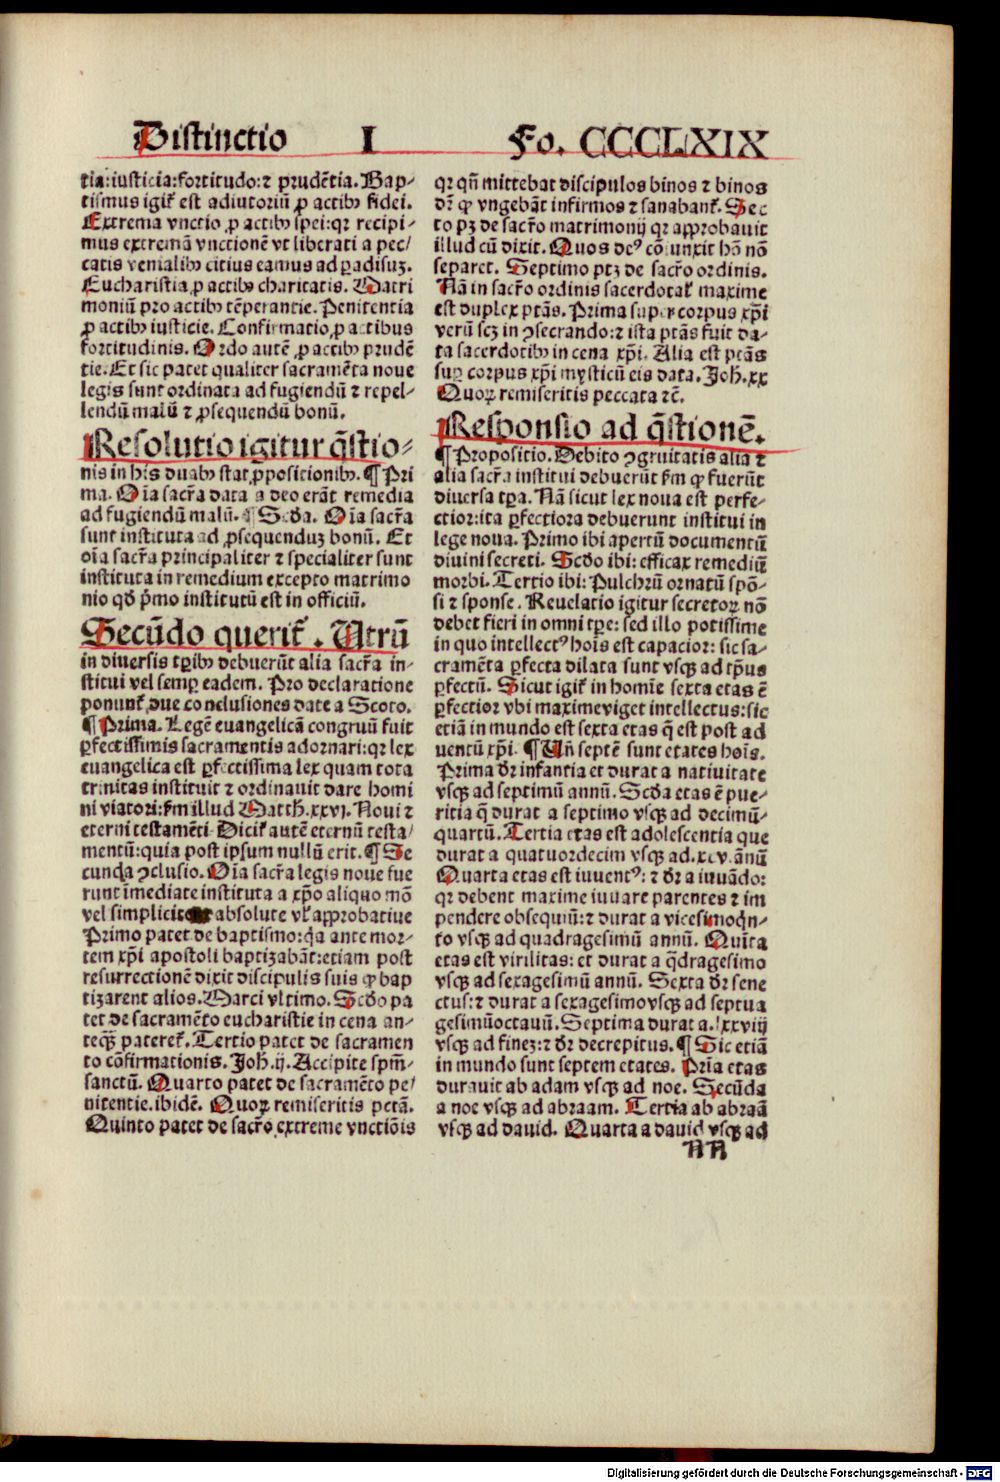 Distinctio I Fo. CCCCLXIX
tia:iusticia:fortitudo:⁊ prudētia. Bap-
tismus igit᷑ est adiutoriū ꝓ actibꝰ fidei.
Extrema vnctio ꝓ actibꝰ spei:qꝛ recipi-
mus extremā vnctionē vt liberati a pec/
catis venialibꝰ citius eamus ad ꝑadisuꝫ.
Eucharistia ꝓ actibꝰ charitatis. Matri
moniū pro actibꝰ tēperantie. Penitentia
ꝓ actibꝰ iusticie. Confirmatio ꝓ actibus
fortitudinis. Ordo autē ꝓ actibꝰ prudē
tie. Et sic patet qualiter sacramēta noue
legis sunt ordinata ad fugiendū ⁊ repel-
lendū malū ⁊ ꝓsequendū bonū.
Resolutio igitur q̄stio-
nis in his duabꝰ stat ꝓpositionibꝰ. ¶ Pri
ma. Oīa sacr̄a data a deo erāt remedia
ad fugiendū malū. ¶ Scd̄a. Oīa sacr̄a
sunt instituta ad ꝓsequenduꝫ bonū. Et
oīa sacr̄a principaliter ⁊ specialiter sunt
instituta in remedium excepto matrimo
nio qd̄ p̄mo institutū est in officiū.
Secūdo querit᷑. Utrū
in diuersis tꝑibꝰ debuerūt alia sacr̄a in-
stitui vel semꝑ eadem. Pro declaratione
ponunt᷑ due conclusiones date a Scoto.
¶ Prima. Legē euangelicā congruū fuit
ꝑfectissimis sacramentis adornari:qꝛ lex
euangelica est ꝑfectissima lex quam tota
trinitas instituit ⁊ ordinauit dare homi
ni viatori:ẜm illud Matth.xxvj. Noui ⁊
eterni testamēti. Dicit᷑ autē eternū testa/
mentū:quia post ipsum nullū erit. ¶ Se
cunda ꝯclusio. Oīa sacr̄a legis noue fue
runt īmediate instituta a xp̄o aliquo mō
vel simplicit absolute vl᷑ approbatiue
Primo patet de baptismo:qꝛ ante mor-
tem xp̄i apostoli baptizabāt:etiam post
resurrectionē dixit discipulis suis ꝙ bap
tizarent alios. Marci vltimo. Scd̄o pa
tet de sacramēto eucharistie in cena an-
teqꝫ pateret᷑. Tertio patet de sacramen
to cōfirmationis. Joh̄. ij. Accipite spm̄-
sanctū. Quarto patet de sacramēto pe/
nitentie. ibidē. Quoꝝ remiseritis pctā.
Quinto patet de sacr̄o extreme vnctiōis
qꝛ qn̄ mittebat discipulos binos ⁊ binos
dr̄ ꝙ vngebāt infirmos ⁊ sanabant᷑. Sec
to pꝫ de sacr̄o matrimonij qꝛ approbauit
illud cū dixit. Quos deꝰ cōiunxit hō nō
separet. Septimo ptꝫ de sacr̄o ordinis.
Nā in sacr̄o ordinis sacerdotal᷑ maxime
est duplex ptās. Prima super corpus xp̄i
verū scꝫ in ꝯsecrando:⁊ ista ptās fuit da-
ta sacerdotibꝰ in cena xp̄i. Alia est ptās
suꝑ corpus xp̄i mysticū eis data. Joh̄.xx
Quoꝝ remiseritis peccata ⁊c̄.
Responsio ad q̄stionē.
¶ Propositio. Debito ꝯgruitatis alia ⁊
alia sacr̄a institui debuerūt ẜm ꝙ fuerūt
diuersa tꝑa. Nā sicut lex noua est perfe-
ctior:ita ꝑfectiora debuerunt institui in
lege noua. Primo ibi apertū documentū
diuini secreti. Scd̄o ibi: efficax remediū
morbi. Tertio ibi: Pulchrū ornatū spō-
si ⁊ sponse. Reuelatio igitur secretoꝝ nō
debet fieri in omni tꝑe: sed illo potissime
in quo intellectꝰ hoīs est capacior: sic sa-
cramēta ꝑfecta dilata sunt vsqꝫ ad tp̄us
ꝑfectū. Sicut igit᷑ in homīe sexta etas ē
ꝑfectior vbi maxime viget intellectus:sic
etiā in mundo est sexta etas q̄ est post ad
uentū xp̄i. ¶ Uñ septē sunt etates hoīs.
Prima dr̄ infantia et durat a natiuitate
vsqꝫ ad septimū annū. Scd̄a etas ē pue-
ritia q̄ durat a septimo vsqꝫ ad decimū-
quartū. Tertia etas est adolescentia que
durat a quatuordecim vsqꝫ ad .xxv. annū
Quarta etas est iuuentꝰ: ⁊ dr̄ a iuuādo:
qꝛ debent maxime iuuare parentes ⁊ im
pendere obsequiū:⁊ durat a vicesimoqn-
to vsqꝫ ad quadragesimū annū. Quīta
etas est virilitas: et durat a q̄dragesimo
vsqꝫ ad sexagesimū annū. Sexta dr̄ sene
ctus:⁊ durat a sexagesimo vsqꝫ ad septua
gesimūoctauū. Septima durat a .lxxviij
vsqꝫ ad fineꝫ:⁊ dr̄ decrepitus. ¶ Sic etiā
in mundo sunt septem etates. Prīa etas
durauit ab adam vsqꝫ ad noe. Secūda
a noe vsqꝫ ad abraam. Tertia ab abraā
vsqꝫ ad dauid. Quarta a dauid vsqꝫ ad
NN
Digitalisierung gefördert durch die Deutsche Forschungsgemeinschaft - DFG